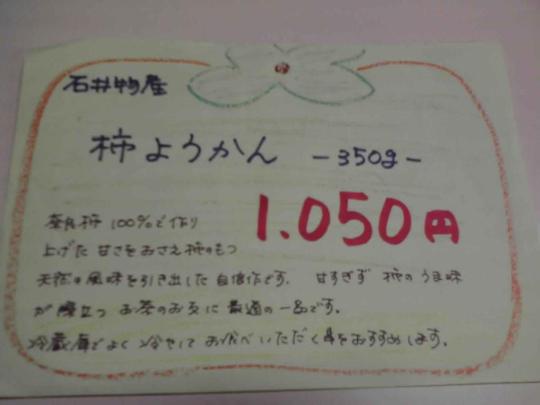 石井物産
柿ようかん -350g-
1.050円
奈良柿 100%で作り
上げた 甘さをおさえ柿のもつ
天然の風味を引き出した自信作です。 甘すぎず 柿のうま味
が際立つ お茶のお友に 最適の一品です。
冷蔵庫でよく冷やして お食べいただく事をおすすめします。